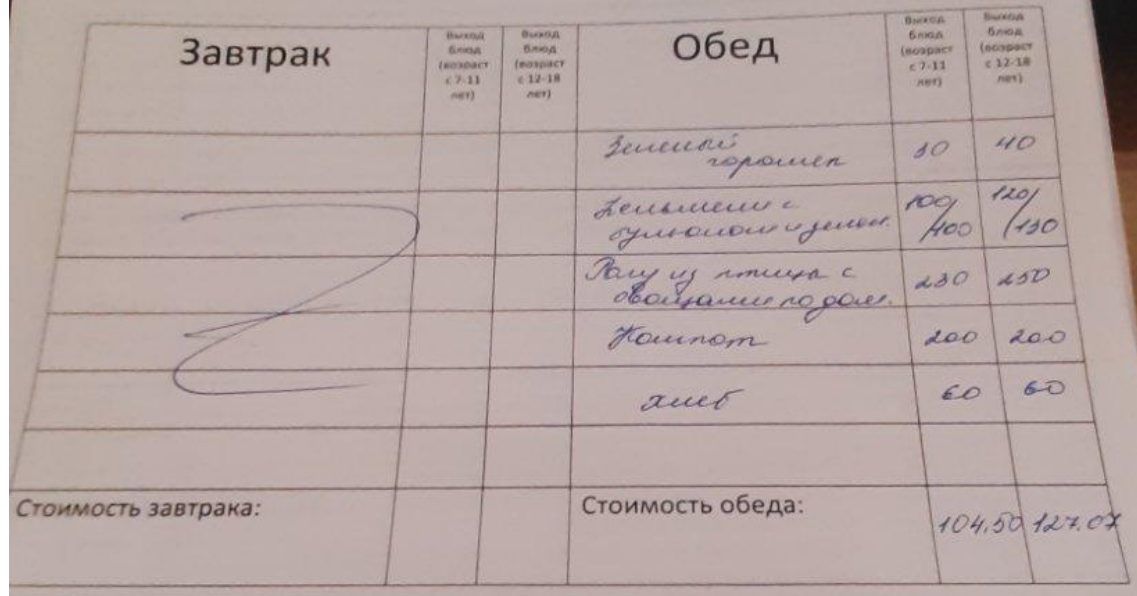 Завтрак
Выход блюд (возраст с 7-11 лет)
Выход блюд (возраст с 12-18 лет)
Обед
Выход блюд (возраст с 7-11 лет)
Выход блюд (возраст с 12-18 лет)
Зеленый
горошек 30 40
Пельмени с
бульоном и зелен. 100/100 120/130
Рагу из птицы с
овощами по дом. 230 250
Компот 200 200
хлеб 60 60
Стоимость завтрака:
Стоимость обеда: 104.50 127.07